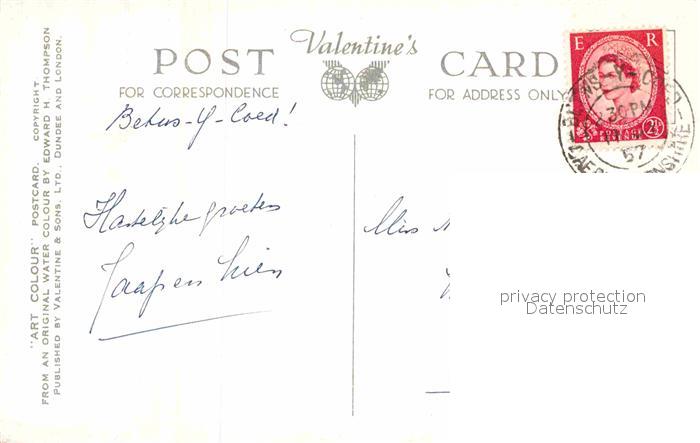 POST Valentine's CARD
FOR CORRESPONDENCE
FOR ADDRESS ONLY
E R
2½
30 PM
57
Betws-y-Coed!
Hartelijke groeten
Jaap en Wien
Miss
privacy protection
Datenschutz
"ART COLOUR" POSTCARD. COPYRIGHT
FROM AN ORIGINAL WATER COLOUR BY EDWARD H. THOMPSON
PUBLISHED BY VALENTINE & SONS, LTD., DUNDEE AND LONDON.